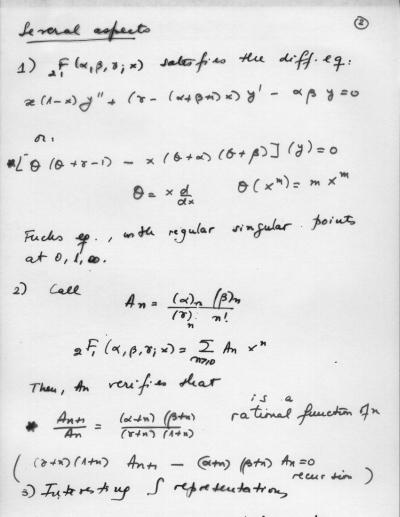 ②
Several aspects
1) ₂F₁(α,β,γ;x) satisfies the diff. eq:
x(1-x)y'' + (γ-(α+β+1)x)y' - αβy=0
or:
*[θ(θ+γ-1) - x(θ+α)(θ+β)](y)=0
θ = x d/dx θ(x^m) = m x^m
Fuchs eq., with regular singular points
at 0, 1, ∞.
2) Call
An = (α)n (β)n / (γ)n n!
₂F₁(α,β,γ;x) = Σ n≥0 An x^n
Then, An verifies that
is a
* An+1/An = (α+n)(β+n) / (γ+n)(1+n) rational function of n
( (γ+n)(1+n) An+1 - (α+n)(β+n) An = 0
recursion )
3) Interesting ∫ representations